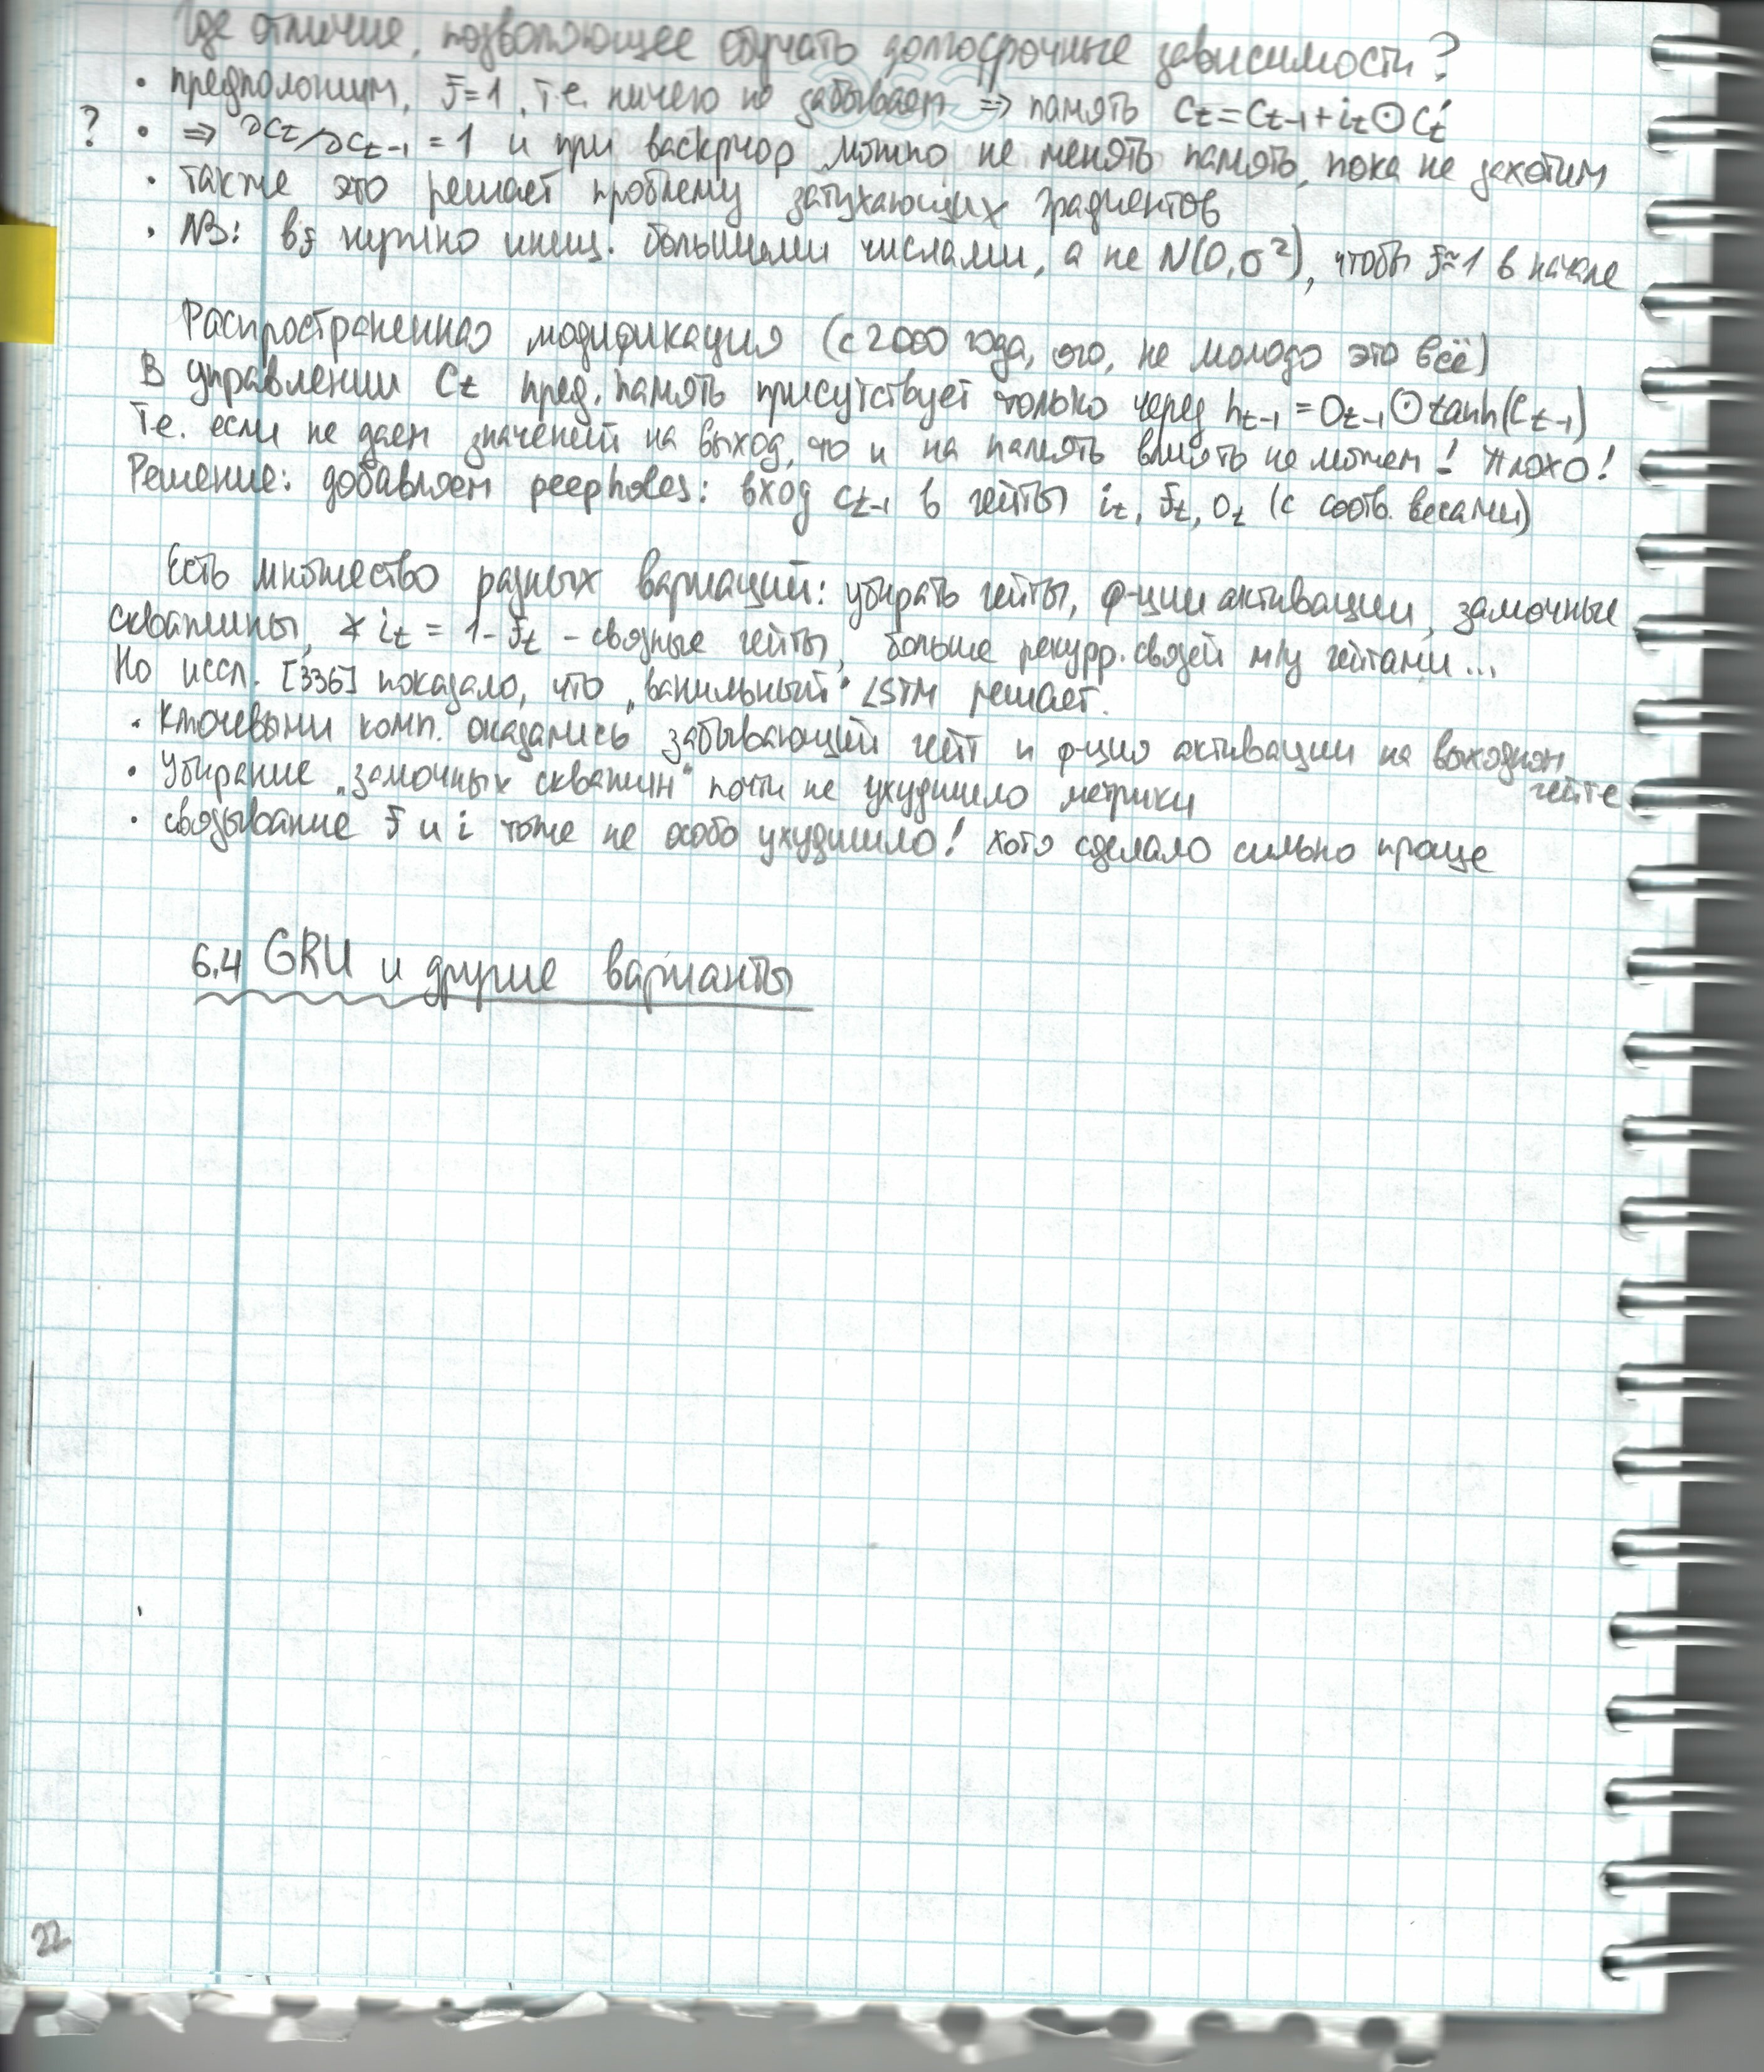 Где отличие, позволяющее обучать долгосрочные зависимости?
• предположим, f=1, т.е. ничего не забываем => память Ct = Ct-1 + it ⊙ Ct'
? • => ∂Ct/∂Ct-1 = 1 и при васкprop можно не менять память, пока не захотим
• также это решает проблему затухающих градиентов
• NB: bf нужно иниц. большими числами, а не N(0,σ²), чтобы f≈1 в начале
Распространенная модификация (с 2000 года, ого, не молодо это всё)
В управлении Ct пред. память присутствует только через ht-1 = Ot-1 ⊙ tanh(Ct-1)
Т.е. если не даем значений на выход, то и на память влиять не можем! Плохо!
Решение: добавляем peepholes: вход ct-1 в гейты it, ft, ot (с соотв. весами)
Есть множество разных вариаций: убирать гейты, ф-ции активации, замочные
скважины, it = 1-ft - связные гейты, больше рекурр. связей м/у гейтами...
Но иссл. [336] показало, что „ванильный“ LSTM решает.
• Ключевыми комп. оказались забывающий гейт и ф-ция активации на выходном
гейте
• Убирание „замочных скважин“ почти не ухудшило метрики
• связывание f и i тоже не особо ухудшило! Хотя сделало сильно проще
6.4 GRU и другие варианты
22